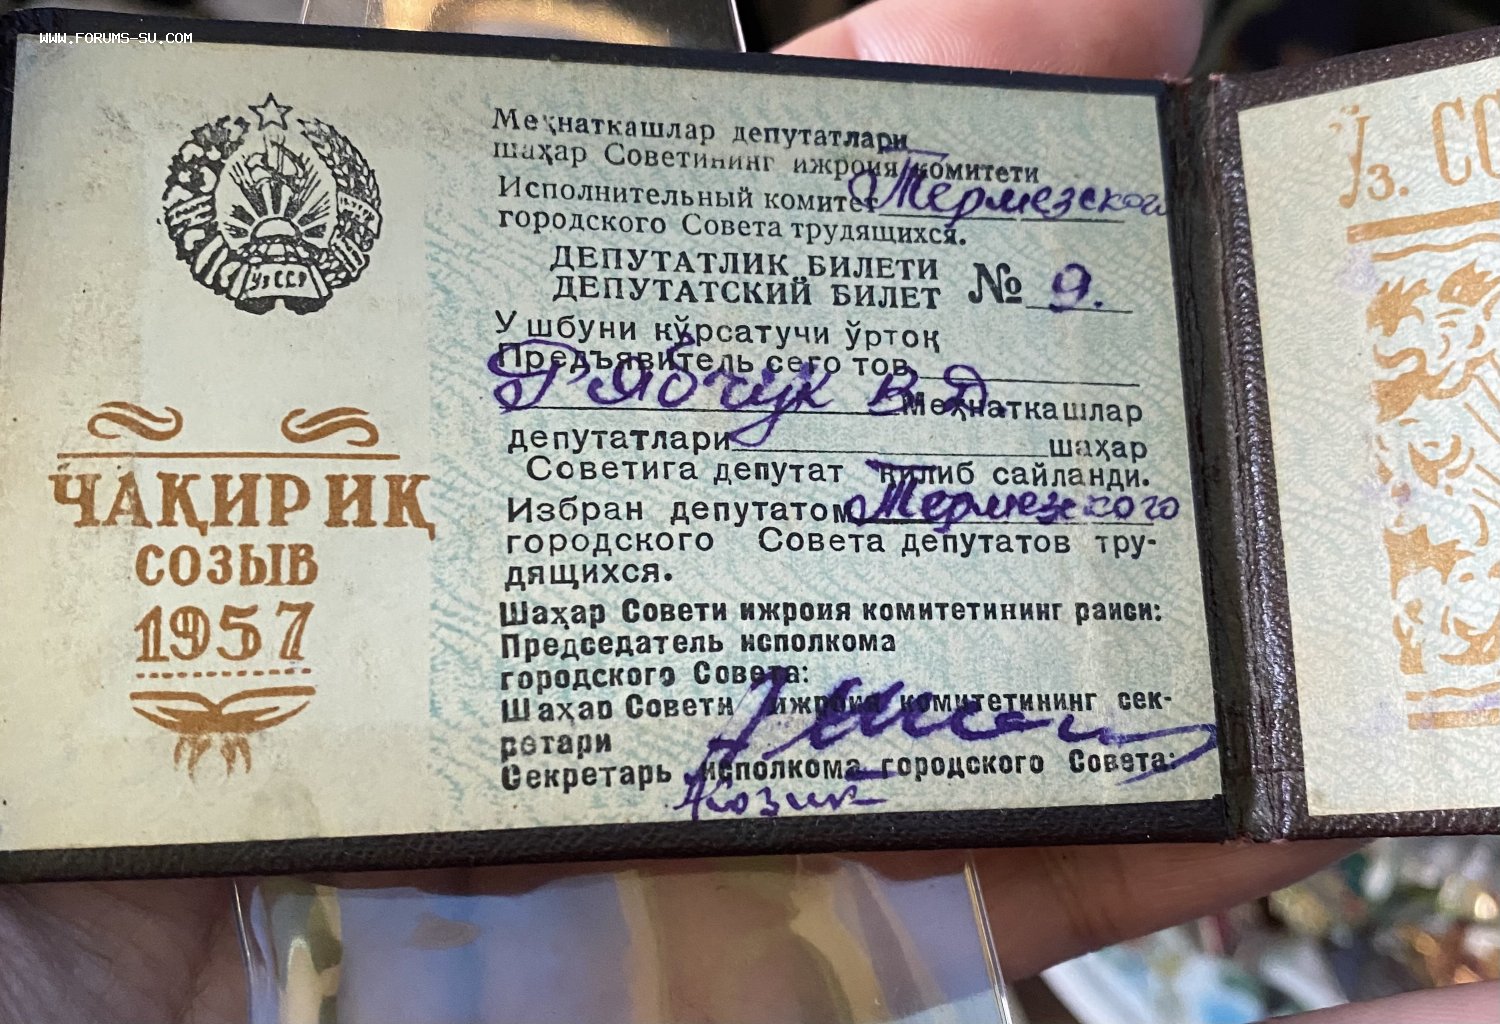 WWW.FORUMS-SU.COM
УзССР
ЧАҚИРИҚ
СОЗЫВ
1957
Меҳнаткашлар депутатлари
шаҳар Советининг ижроия комитети
Исполнительный комитет Термезского
городского Совета трудящихся.
ДЕПУТАТЛИК БИЛЕТИ
ДЕПУТАТСКИЙ БИЛЕТ № 9.
Ушбуни кўрсатучи ўртоқ
Предъявитель сего тов.
Рябчук В. Д. Меҳнаткашлар
депутатлари шаҳар
Советига депутат қилиб сайланди.
Избран депутатом Термезского
городского Совета депутатов тру-
дящихся.
Шаҳар Совети ижроия комитетининг раиси:
Председатель исполкома
городского Совета:
Шаҳар Совети ижроия комитетининг сек-
ретари
Секретарь исполкома городского Совета:
Ўз. СС